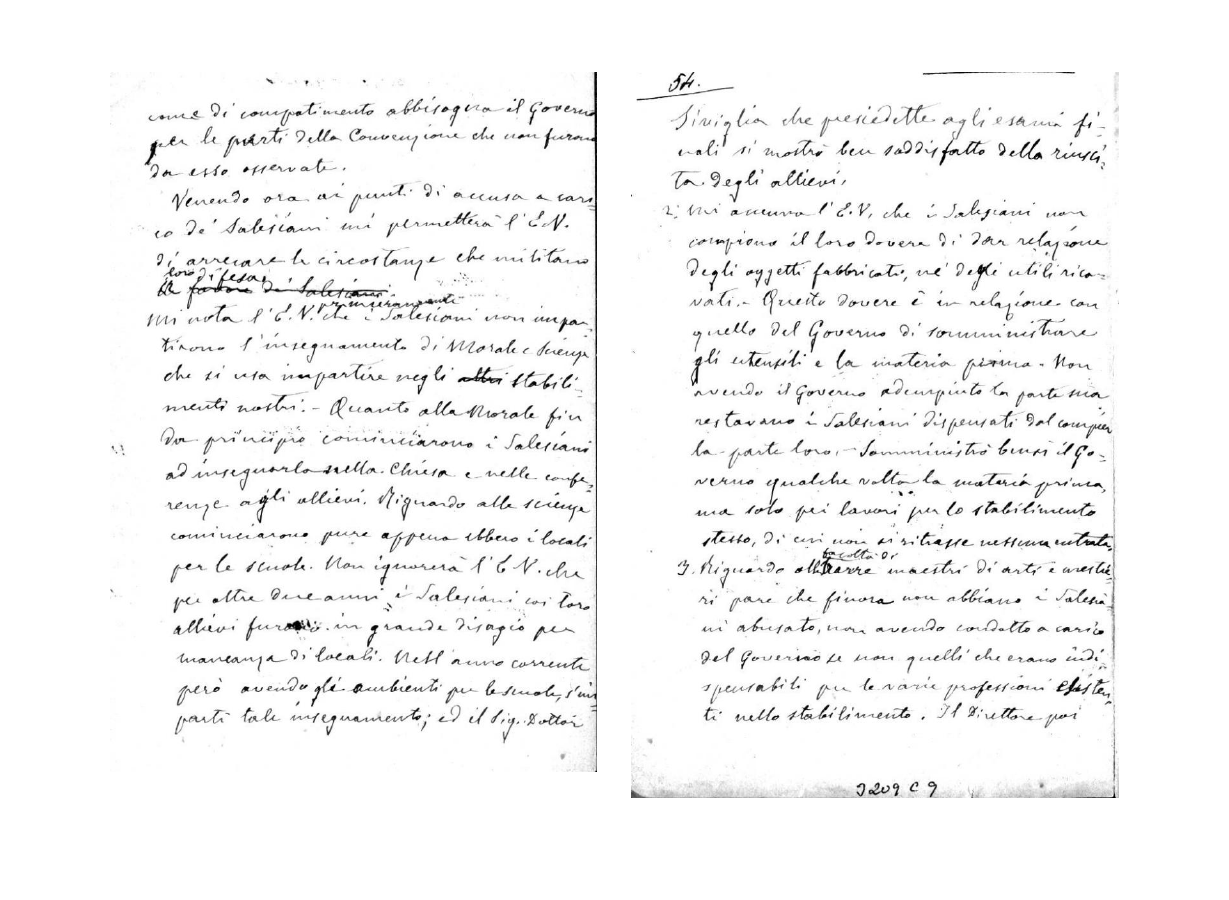 come di compatimento abbisogna il Governo
per le parti della Convenzione che non furono
da esso osservate.
Venendo ora ai punti di accusa a cari-
co de' Salesiani mi permetterà l'E.V.
di arrecare le circostanze che militano
loro difesa
favore dei Salesiani.
primieramente
Mi nota l'E.V. che i Salesiani non impar-
tirono l'insegnamento di Morale e Scienze
che si usa impartire negli altri stabili-
menti nostri. - Quanto alla Morale fin
da principio cominciarono i Salesiani
ad insegnarla nella Chiesa e nelle confe-
renze agli allievi. Riguardo alle scienze
cominciarono pure appena ebbero i locali
per le scuole. Non ignorerà l'E.V. che
per oltre due anni i Salesiani coi loro
allievi furono in grande disagio per
mancanza di locali. Nell'anno corrente
però avendo gli ambienti per le scuole, s'im
partì tale insegnamento; ed il Sig. Dottor
54.
Siviglia che presiedette agli esami fi-
nali si mostrò ben soddisfatto della riusci-
ta degli allievi.
2. Mi accenna l'E.V. che i Salesiani non
compiono il loro dovere di dar relazione
degli oggetti fabbricati, nè degli utili rica-
vati. - Questo dovere è in relazione con
quello del Governo di somministrare
gli utensili e la materia prima. - Non
avendo il Governo adempiuto la parte sua
restavano i Salesiani dispensati dal compier
la parte loro. - Somministrò bensì il Go-
verno qualche volta la materia prima,
ma solo pei lavori per lo stabilimento
stesso, di cui non si ritrasse nessuna entrata.
facoltà di
3. Riguardo alla trarre maestri di arti e mestie-
ri pare che finora non abbiano i Salesia-
ni abusato, non avendo condotto a carico
del Governo se non quelli che erano indi-
spensabili per le varie professioni esisten-
ti nello stabilimento. Il Direttore poi
3209 C 9